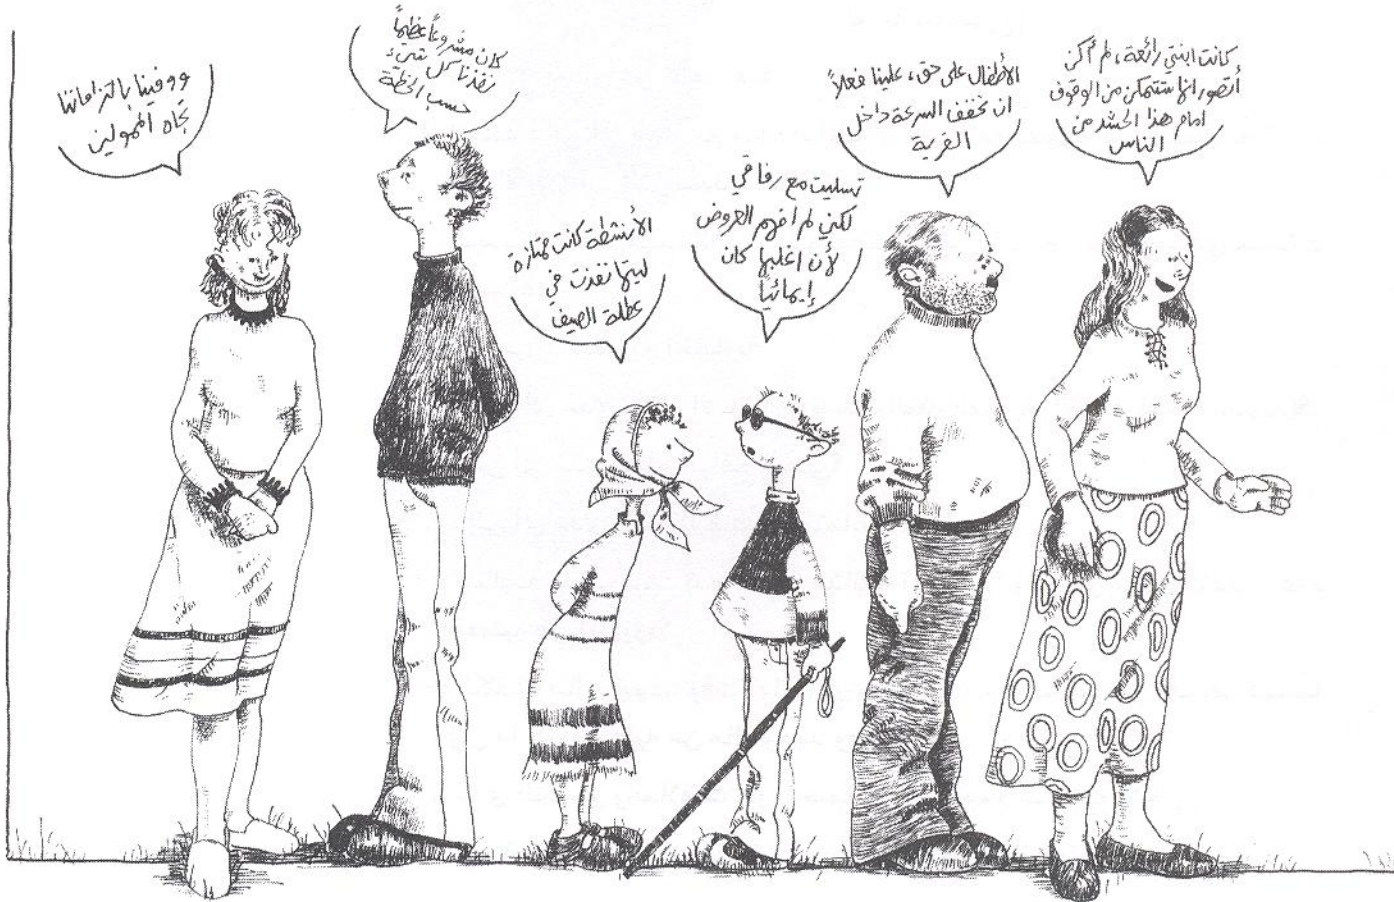 كانت ابنتي رائعة، لم أكن
أتصور انها ستتمكن من الوقوف
امام هذا الحشد من
الناس
الأطفال على حق، علينا فعلاً
ان نخفف السرعة داخل
القرية
تسليت مع رفاقي
لكني لم افهم العروض
لأن اغلبها كان
إيمائياً
الأنشطة كانت ممتازة
ليتها نفذت في
عطلة الصيف
كان مشروعاً عظيماً
نفذنا كل شيء
حسب الخطة
ووفينا بالتزاماتنا
تجاه الممولين